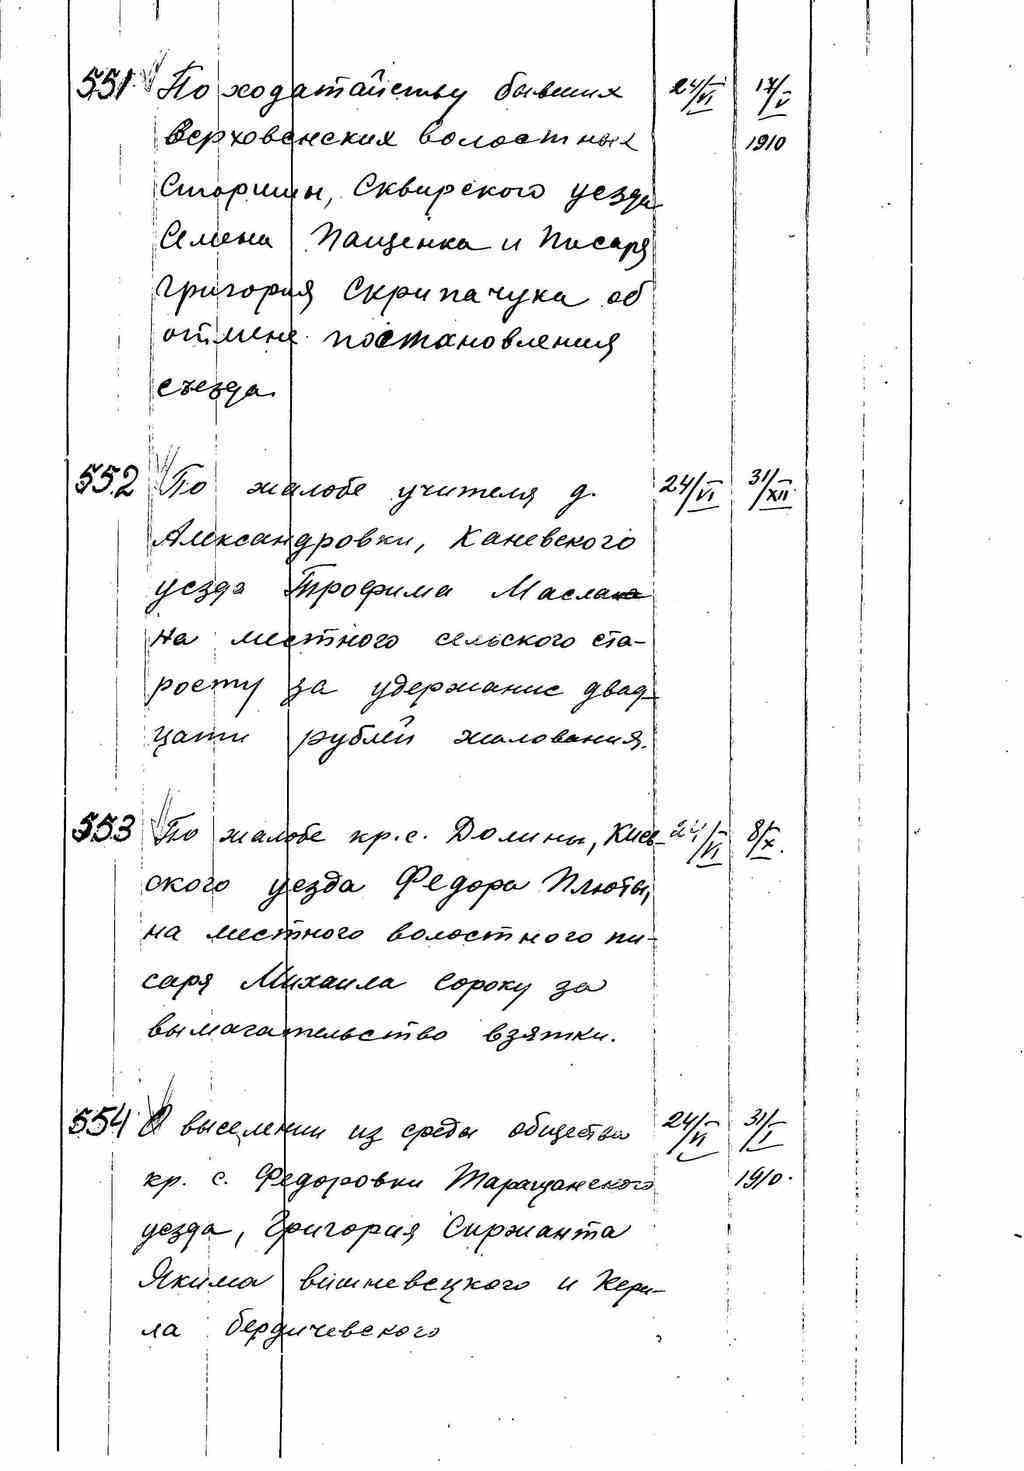 551 По ходатайству бывших 24/VI 17/V
Верховенских волостных 1910
Старшин, Сквирского уезда
Семена Пащенка и Писаря
Григория Скрипачука об
отмене постановления
съезда.
552 По жалобе учителя д. 24/VI 31/XII.
Александровки, Каневского
уезда Трофима Маслака
на местного сельского ста-
росту за удержание двад-
цати рублей жалования.
553 По жалобе кр. с. Долины, Киев- 24/VI 8/X.
ского уезда Федора Плюты,
на местного волостного пи-
саря Михаила Сороку за
вымагательство взятки.
554 О выселении из среды общества 24/VI 31/I
кр. с. Федоровки Таращанского 1910.
уезда, Григория Сиржанта
Якима Вишневецкого и Кери-
ла Бердичевского